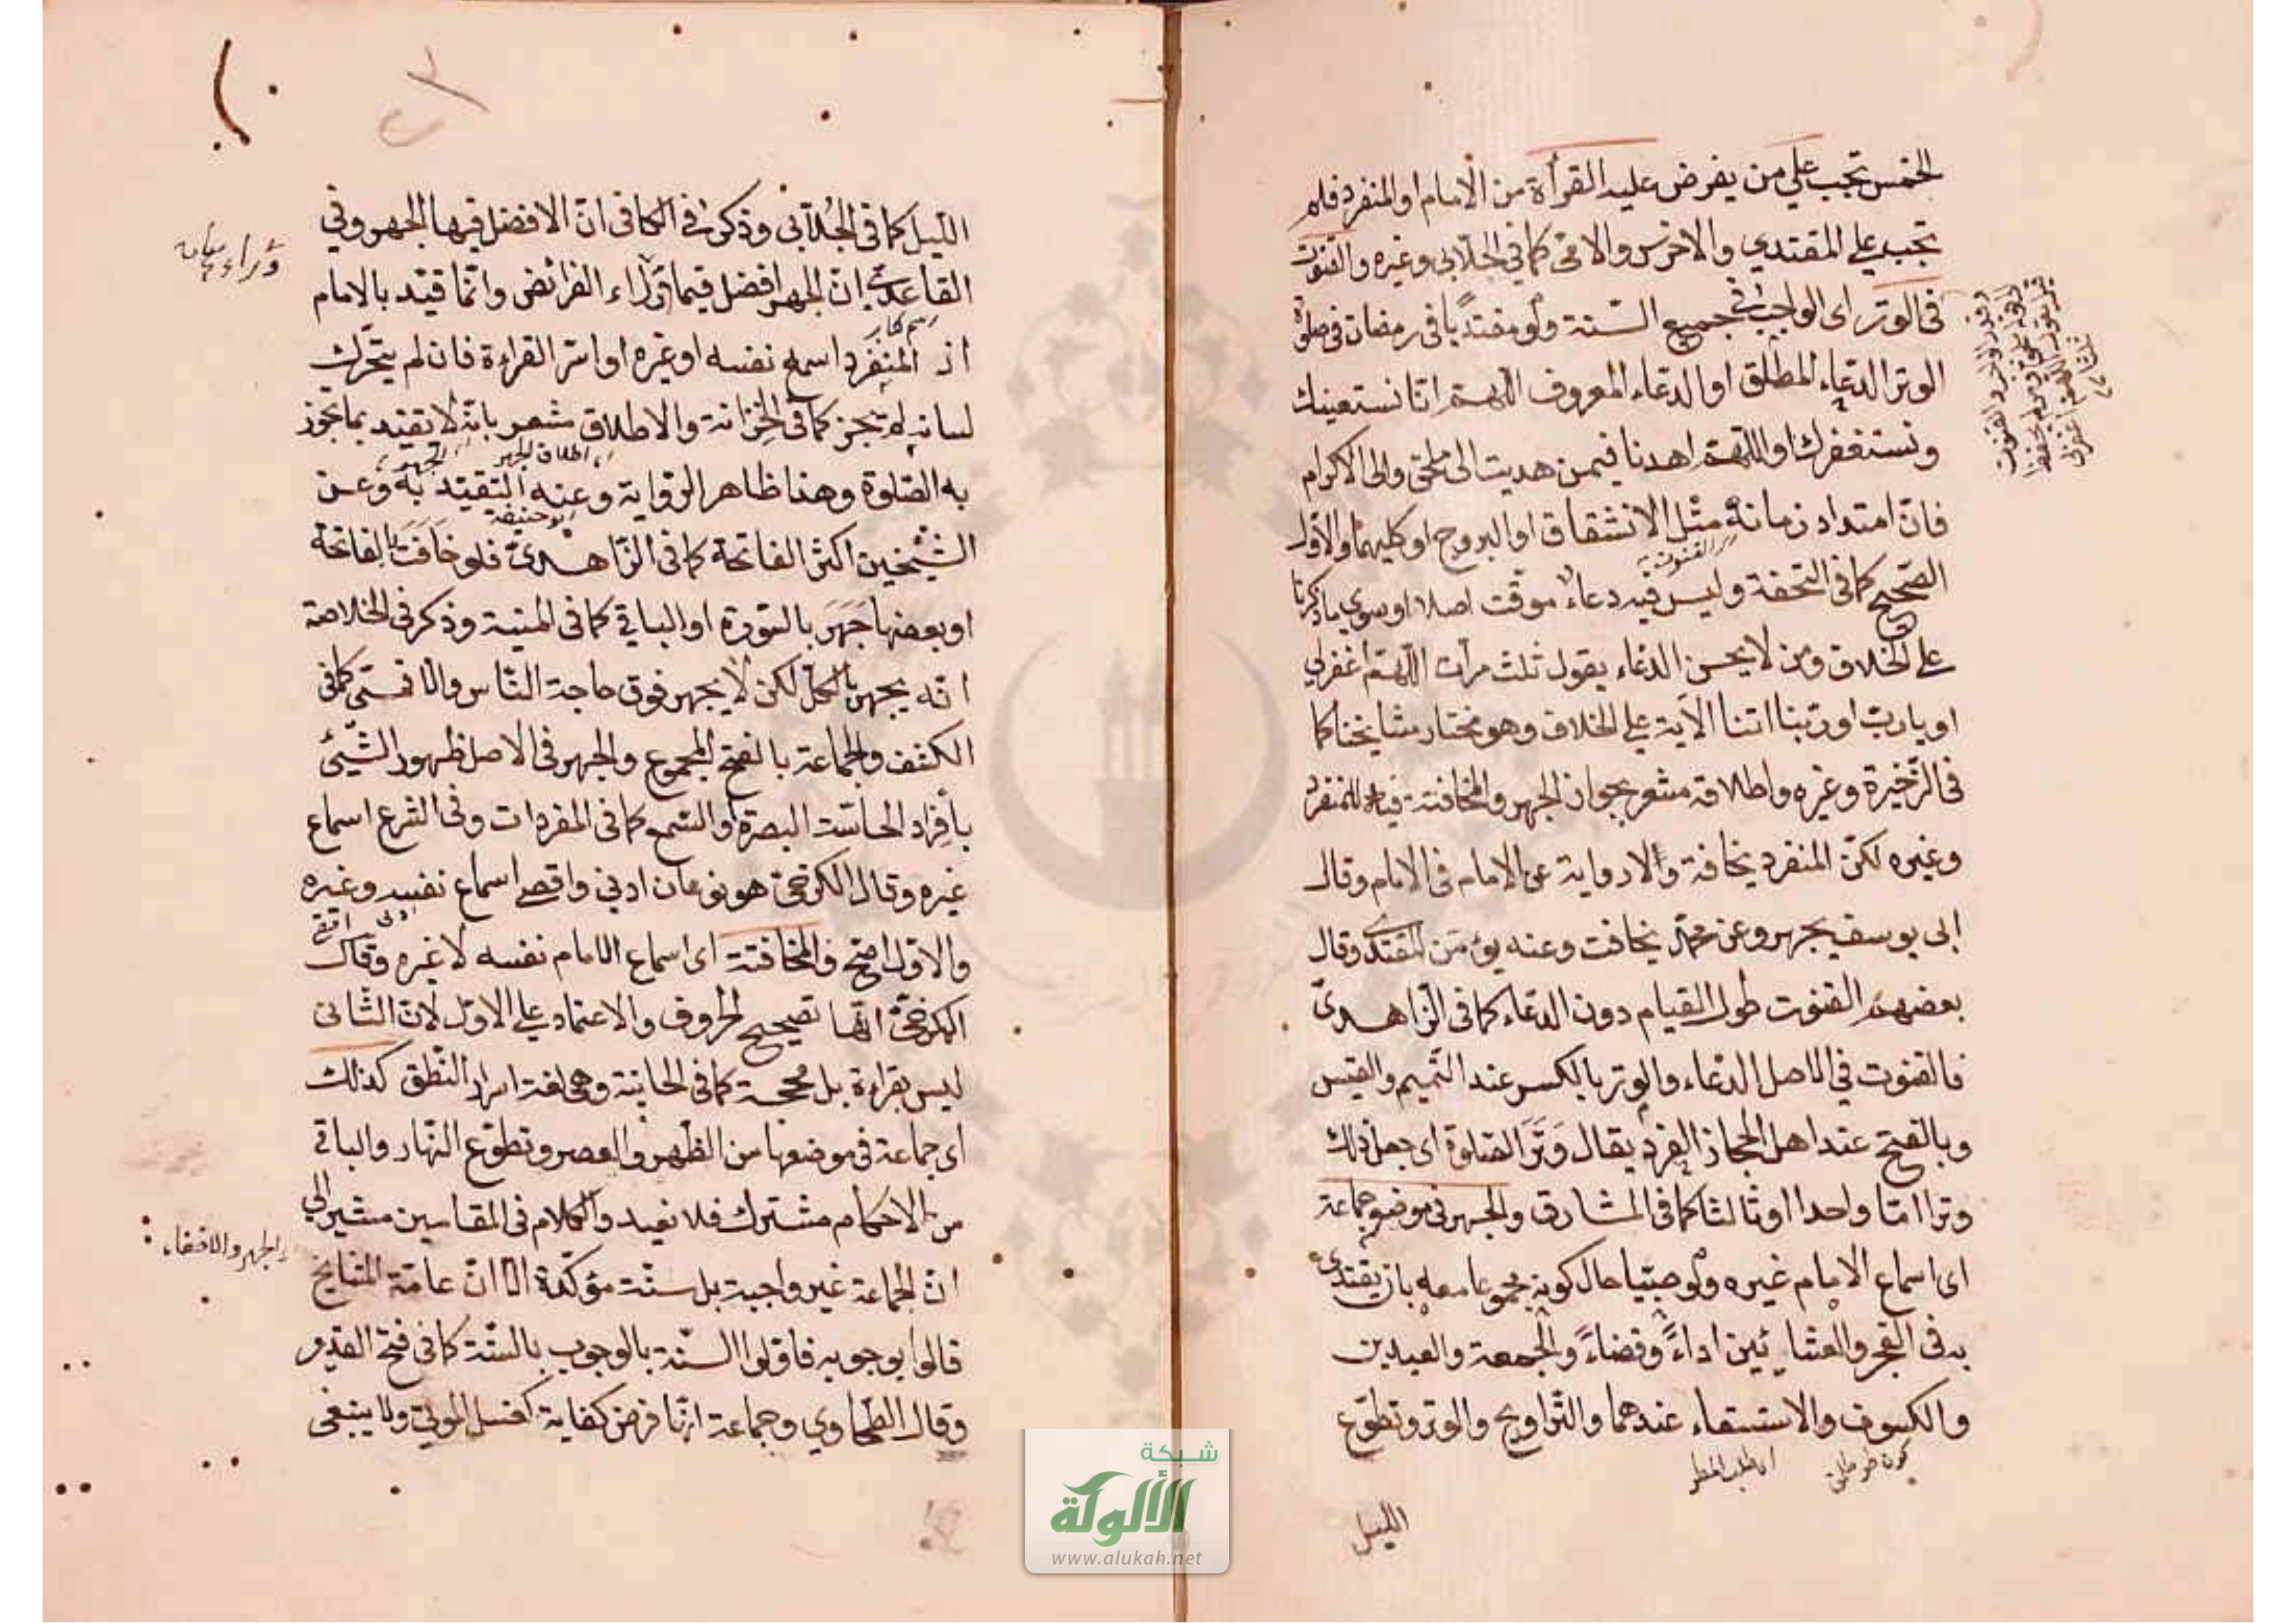 الخمس تجب علي من يفرض عليه القرأة من الامام او المنفرد فلم
تجب علي المقتدي والاخرس والامّى كما فى الجلّابى وغيره والقنوت
فى الوتر اى الواجب فى جميع السّنة ولو مقتديًا فى رمضان فى صلوة
الوتر الدّعاء المطلق او الدعاء المعروف اللّهمّ انّا نستعينك
ونستغفرك او اللّهمّ اهدنا فيمن هديت الى ملحق والى الاكرام
فانّ امتداد زمانه مثل الانشقاق او البروج او كليهما والاوّل
القنوت
الصّحيح كما فى التحفة وليس فيه دعاء موقّت اصلا او سوي ما ذكرنا
على الخلاف ومن لا يحسن الدعاء يقول ثلث مرات اللّهمّ اغفرلي
او يا ربّ او ربّنا اتنا الآية علي الخلاف وهو مختار مشايخنا كما
فى الذّخيرة وغيره واطلاقه مشعر بجواز الجهر والمخافتة فيه للمنفرد
وغيره لكنّ المنفرد يخافة والا رواية عن الامام فى الامام وقال
ابى يوسف يجهر وعن محمّد يخافت وعنه يؤمّن المقتدى وقال
بعضهم القنوت طول القيام دون الدّعاء كما فى الزّاهدىّ
فالقنوت فى الاصل الدّعاء والوتر بالكسر عند التّميم والقيس
وبالفتح عند اهل الحجاز الفرد يقال وَتَرَ الصّلوة اى جعل ذلك
وترا امّا واحدا او ثالثا كما فى المشارق والجهر فى موضع جماعة
اى اسماع الامام غيره ولو صبيّا حال كونه مجموعا معه بان يقتدى
به فى الفجر والعشائين اداءً وقضاءً والجمعة والعيدين
والكسوف والاستسقاء عندهما والتّراويح والوتر وتطوّع
اى طلب المطر
الليل
الليل كما فى الجُلّابى وذكر فى الكافى انّ الافضل فيها الجهر وفي
القاعدىّ انّ الجهر افضل فيما وراء الفرائض وانّما قيّد بالامام
اذ المنفرد اسمع نفسه او غيره او اسرّ القراءة فان لم يتحرّك
لسانه لم تجز كما فى الخزانة والاطلاق مشعر بانّه لا يقيّد بما تجوز
اطلاق الجهر الجهر
به الصّلوة وهذا ظاهر الرّواية وعنه التّقيّد به وعن
ابو حنيفة
الشّيخين اكثر الفاتحة كما فى الزّاهدىّ فلو خَافَتَ بالفاتحة
او بعضها جَهَرَ بالسّورة او الباقي كما فى المنية وذكر فى الخلاصة
انّه يجهر بالكلّ لكن لا يجهر فوق حاجة النّاس والا فسئى كما فى
الكشف والجماعة بالفتح المجموع والجهر فى الاصل ظهور الشّيئ
بأفراد الحاسّة البصرة او السّمع كما فى المفردات وفى الشّرع اسماع
غيره وقال الكرخىّ هو نوعان ادنى واقصى اسماع نفسه وغيره
والاوّل اصحّ والمخافتة اى اسماع الامام نفسه لا غيره وقال
الكرخىّ انّها تصحيح الحروف والاعتماد علي الاوّل لانّ الثّانى
ليس بقراءة بل مجمجة كما فى الخانية وهى لغة اسرار النّطق كذلك
اى جماعة فى موضعها من الظّهر والعصر وتطوّع النّهار والباقي
من الاحكام مشترك فلا نعيد والكلام فى المقامين مشير الي
انّ الجماعة غير واجبة بل سنّة مؤكّدة الا انّ عامّة المشايخ
قالوا بوجوبه فاوّلوا السّنة بالوجوب بالسّنة كما فى فتح القدير
وقال الطّحاوي وجماعة انّها فرض كفاية كغسل الموتى ولا ينبغى
الجهر والاخفاء
شبكة
الألوكة
www.alukah.net